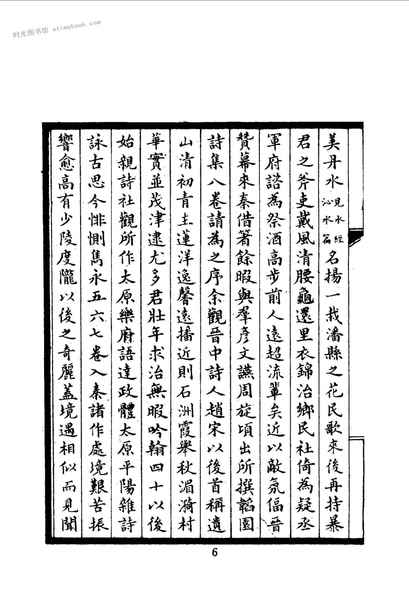 时光图书馆 etimebook.com
美丹水見水經沁水篇名揚一裁潘縣之花民歌來後再持暴
君之斧吏戴風清腰龜還里衣錦治鄉民社倚為疑丞
軍府諮為祭酒高步前人遠超流輩矣近以敵氛偪晉
贊幕來秦借箸餘暇與羣彥文讌周旋頃出所撰韜園
詩集八卷請為之序余觀晉中詩人趙宋以後首稱遺
山清初青主蓮洋逸馨遠播近則石洲霞舉秋湄漪村
華實並茂津逮尤多君壯年求治無暇吟翰四十以後
始親詩社觀所作太原樂府語達政體太原平陽雜詩
詠古思今悱惻雋永五六七卷入秦諸作處境艱苦振
響愈高有少陵度隴以後之奇麗蓋境遇相似而見聞
6